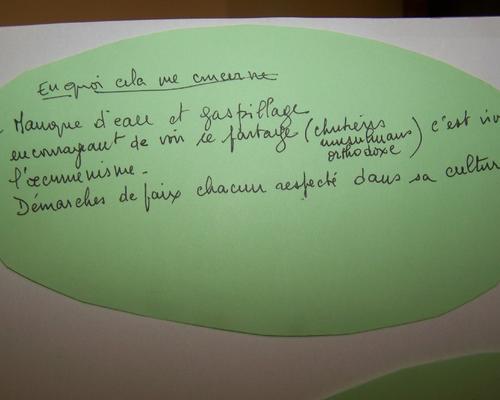 En quoi cela me concerne
- Manque d'eau et gaspillage
encourageant de voir ce partage (chrétiens musulmans orthodoxe) c'est viv
l'œcuménisme -
Démarches de paix chacun respecté dans sa cultur